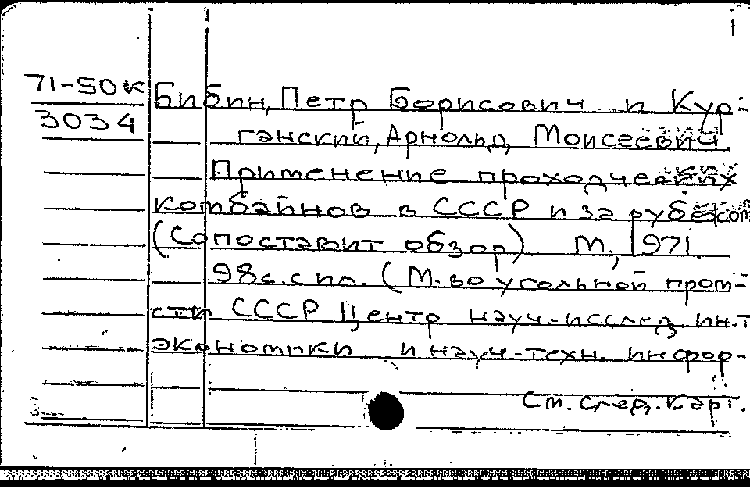 1
71-50к
3034
Бибин, Петр Борисович и Кур-
ганский, Арнольд Моисеевич
Применение проходческих
комбайнов в СССР и за рубежом
(Сопоставит обзор) М., 1971
98с. с ил. (М-во угольной пром-
сти СССР Центр науч.-исслед. ин.т
экономики и науч.-техн. инфор-
См. след. карт.